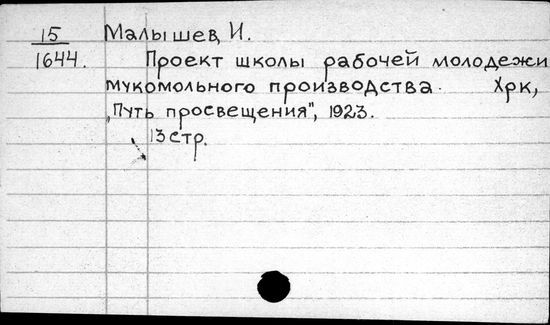 15
1644.
Малышев, И.
Проект школы рабочей молодежи
мукомольного производства. Хрк,
„Путь просвещения", 1923.
13 стр.